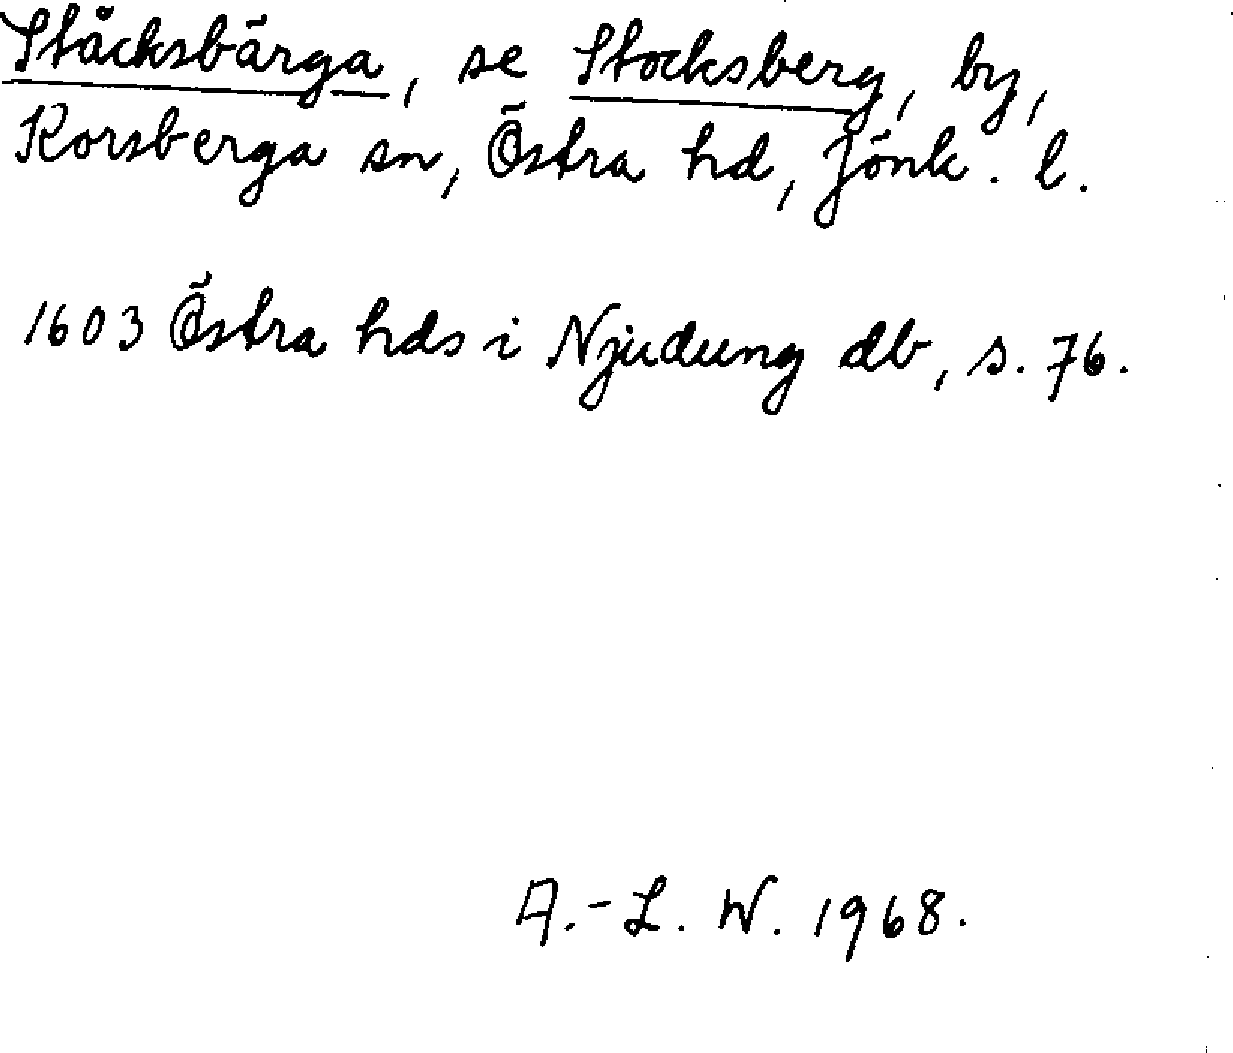 Ståcksbärga, se Stocksberg, by,
Korsberga sn, Östra hd, Jönk. l.
1603 Östra hds i Njudung db, s. 76.
A.-L. W. 1968.